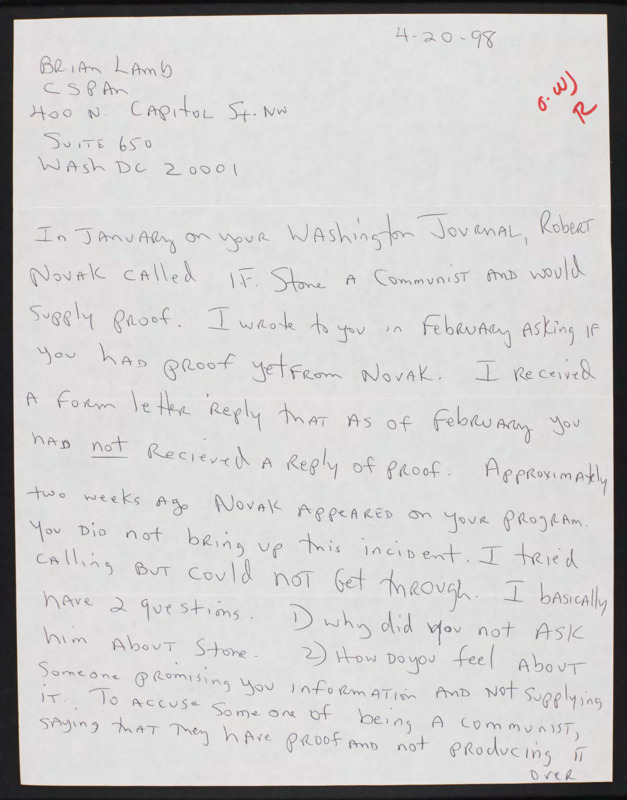 4-20-98
BRIAN LAMB
CSPAN
400 N. CAPITOL St. NW
SUITE 650
WASH DC 20001
o. WJ
R
In JANUARY on your WASHington JOURNAL, ROBERT
NOVAK CALLED I.F. Stone A Communist AND would
Supply PROOF. I wrote to you in FebRUARY ASking IF
you HAD PROOF yet FROM NOVAK. I Received
A Form letter Reply tHAT AS OF FebRUARY you
HAD not Recieved A Reply of PROOF. Approximately
two weeks Ago NOVAK APPEARED on youR PROGRAM.
You DID not bRing up this incident. I tried
CAlling BUT COULD NOT Get tHROUGH. I bASICAlly
HAve 2 questions. 1) why did you not ASK
him ABOUT Stone. 2) How Do you feel ABOUT
Someone PROMISing You INFORMATION AND Not Supplying
IT. To ACCUSE Some one of being A COMMUNIST,
SAYING tHAT They HAve PROOF AND not PRODUCING IT
OVER